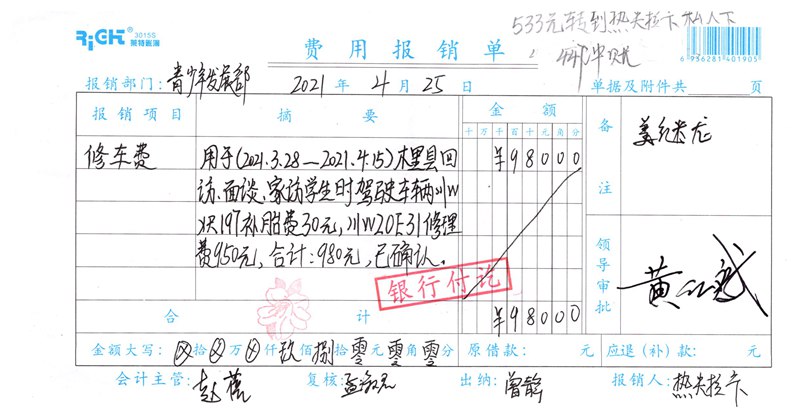 RiCH® 3015S
莱特图澜
533元转到热夬拉卡私人下
6936281401905
费用报销单
报销部门:青少年发展部 2021年4月25日 单据及附件共 页
报销项目 摘要 金额 备注 姜继龙
十万千百十元角分
修车费 用于(2021.3.28—2021.4.15)木里县回 ¥98000
访、面谈、家访学生时驾驶车辆川W
197补胎费30元,川W20E31修理
费950元,合计:980元,已确认。
银行付讫
领导审批 黄
合计 ¥98000
金额大写:⊗拾⊗万⊗仟玖佰捌拾零元零角零分 原借款: 元 应退(补)款: 元
会计主管:赵蓓 复核: 出纳:曾 报销人:热夬拉卡